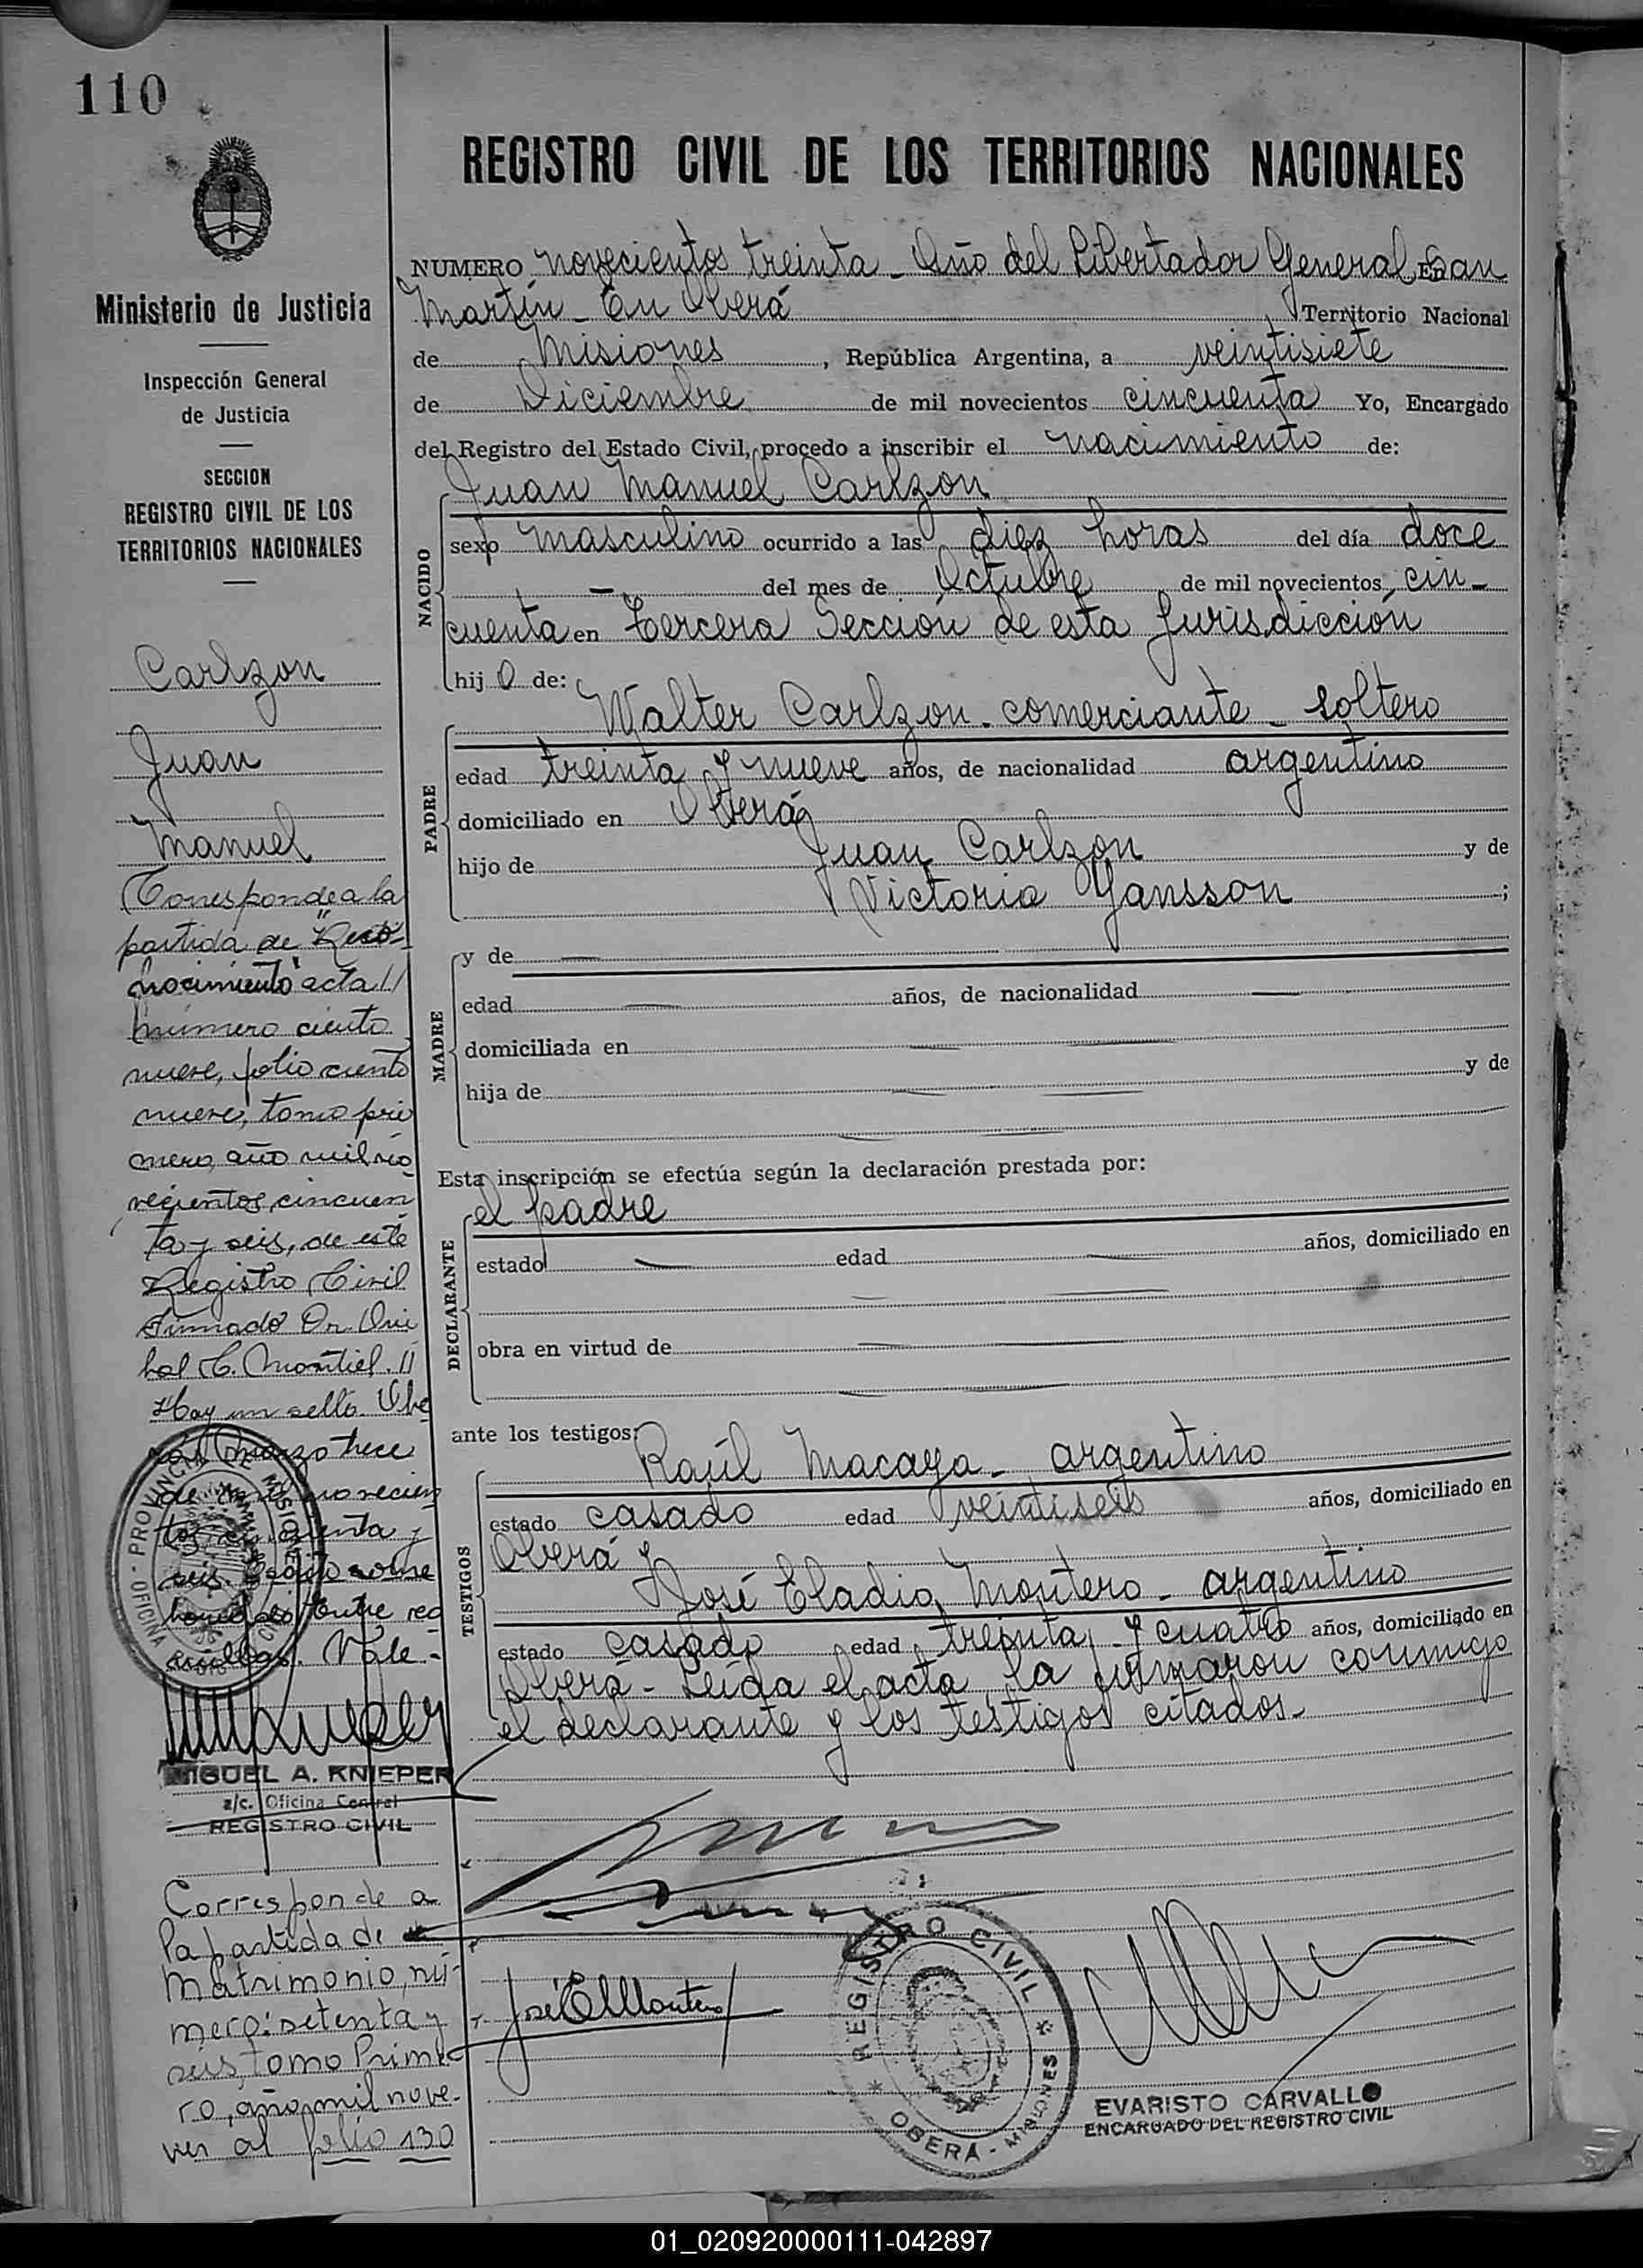 110
Ministerio de Justicia
Inspección General
de Justicia
SECCION
REGISTRO CIVIL DE LOS
TERRITORIOS NACIONALES
Carlzon
Juan
Manuel
Corresponde a la
partida de "Reco-
nocimiento" acta //
número ciento
nueve, folio ciento
nueve, tomo pri
mero, año mil no
vecientos cincuen
ta y seis, de este
Registro Civil
Firmado Dr.
C. Montiel. //
Hay un sello. Obe
rá, Marzo trece
de mil novecien
tos cincuenta y
seis.
Vale.-
MIGUEL A. KNIEPER
a/c. Oficina Central
REGISTRO CIVIL
Corresponde a
la partida de
Matrimonio, nú-
mero: setenta y
seis, tomo Prime-
ro, año mil nove-
ver al folio 130
REGISTRO CIVIL DE LOS TERRITORIOS NACIONALES
NUMERO novecientos treinta - Año del Libertador General San
Martín - En Oberá Territorio Nacional
de Misiones, República Argentina, a veintisiete
de Diciembre de mil novecientos cincuenta Yo, Encargado
del Registro del Estado Civil, procedo a inscribir el nacimiento de:
NACIDO
Juan Manuel Carlzon
sexo masculino ocurrido a las diez horas del día doce
- del mes de Octubre de mil novecientos cin-
cuenta en Tercera Sección de esta Jurisdicción
hijo de:
PADRE
Walter Carlzon - comerciante - soltero
edad treinta y nueve años, de nacionalidad argentino
domiciliado en Oberá
hijo de Juan Carlzon y de
Victoria Yansson;
MADRE
y de
edad años, de nacionalidad
domiciliada en
hija de y de
Esta inscripción se efectúa según la declaración prestada por:
DECLARANTE
el padre
estado edad años, domiciliado en
obra en virtud de
ante los testigos:
TESTIGOS
Raúl Macaya - argentino
estado casado edad veintiseis años, domiciliado en
Oberá y
José Eladio Montero - argentino
estado casado edad treinta y cuatro años, domiciliado en
Oberá - Leída el acta, la firmaron conmigo
el declarante y los testigos citados.-
José E Montero
REGISTRO CIVIL
OBERÁ - MISIONES
EVARISTO CARVALLO
ENCARGADO DEL REGISTRO CIVIL
01_020920000111-042897